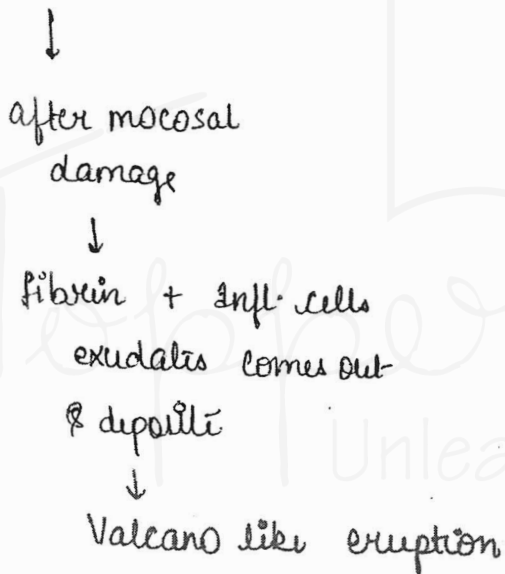 ↓
after mocosal
damage
↓
fibrin + Infl. cells
exudatis comes out
& deposite
↓
Valcano like eruption
Topper
Unlea